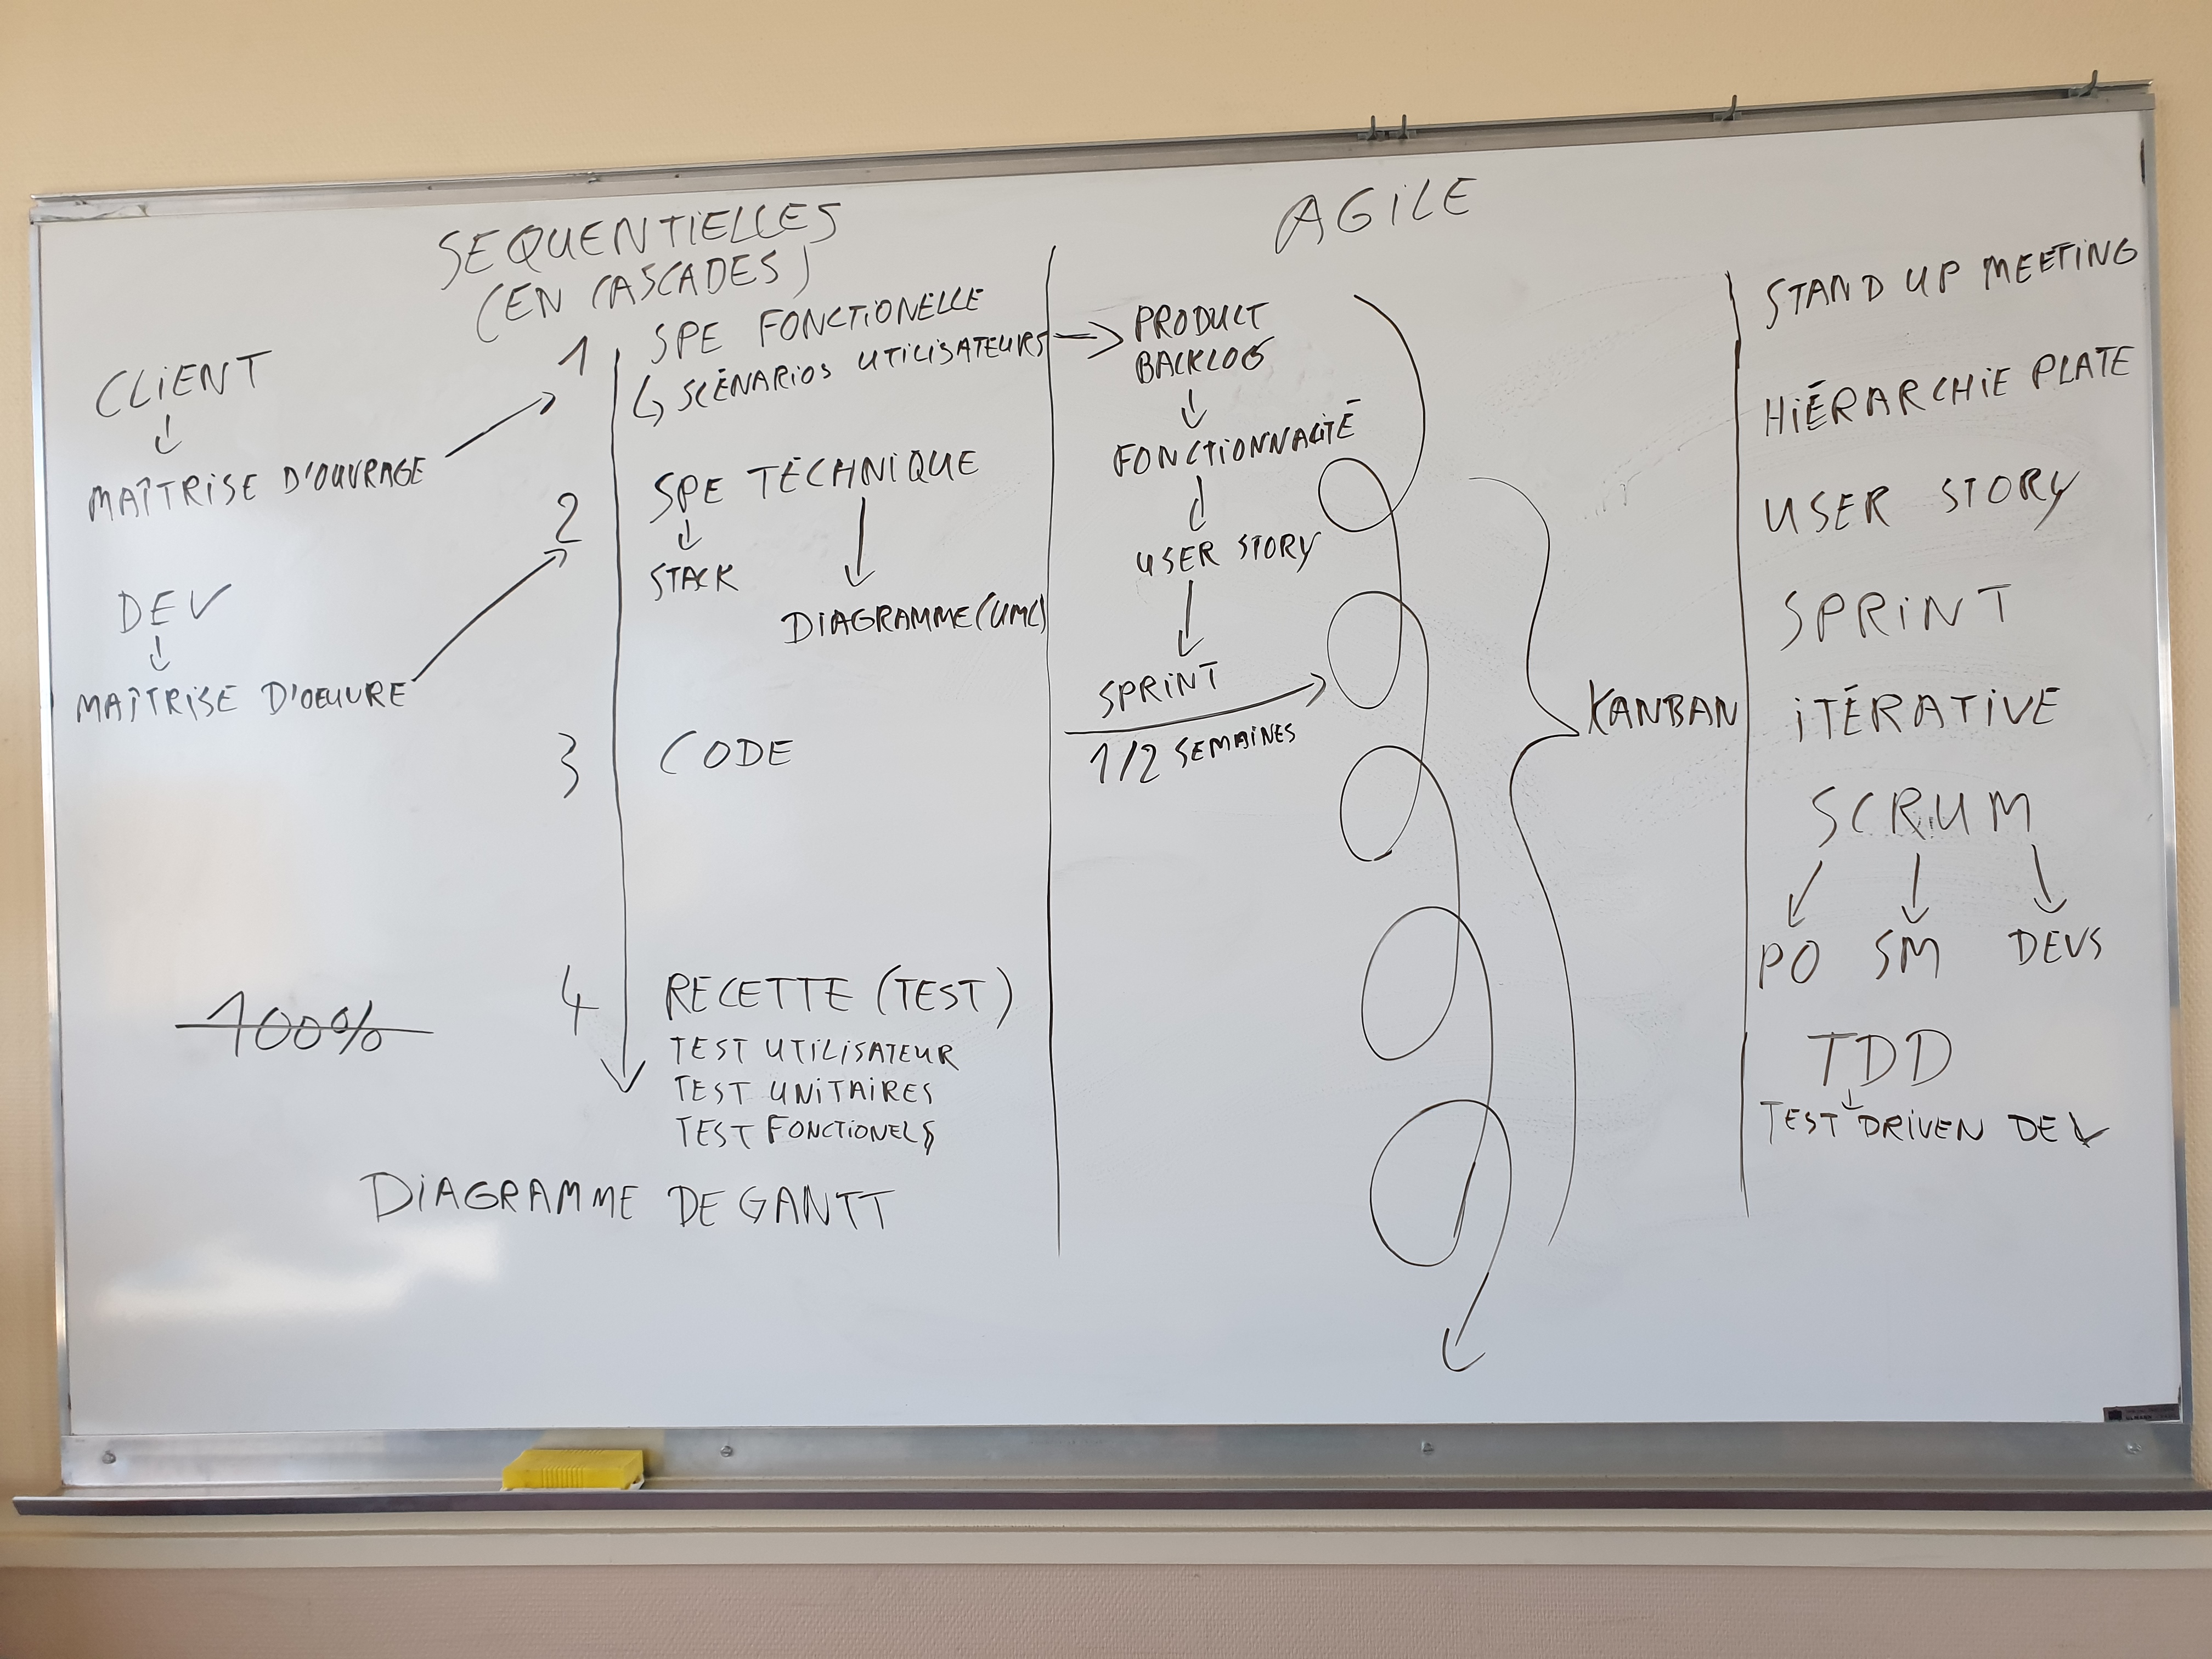 SEQUENTIELLES
(EN CASCADES)
CLIENT
MAÎTRISE D'OUVRAGE
DEV
MAÎTRISE D'OEUVRE
100%
1 SPE FONCTIONELLE
SCÉNARIOS UTILISATEURS
2 SPE TECHNIQUE
STACK
DIAGRAMME (UML)
3 CODE
4 RECETTE (TEST)
TEST UTILISATEUR
TEST UNITAIRES
TEST FONCTIONELS
DIAGRAMME DE GANTT
AGILE
PRODUCT
BACKLOG
FONCTIONNALITÉ
USER STORY
SPRINT
1/2 SEMAINES
KANBAN
STAND UP MEETING
HIÉRARCHIE PLATE
USER STORY
SPRINT
ITÉRATIVE
SCRUM
PO SM DEVS
TDD
TEST DRIVEN DEV